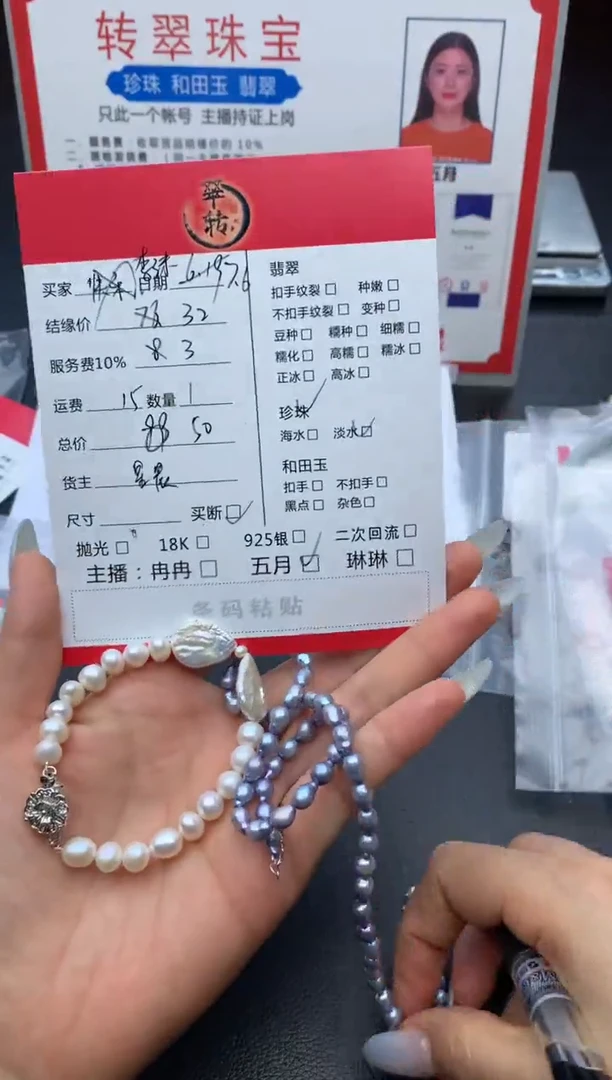 转翠珠宝
珍珠 和田玉 翡翠
只此一个帐号 主播持证上岗
五月
翠
转
买家 日期
结缘价 32
服务费10% 3
运费 15 数量 1
总价 50
货主 星辰
尺寸 买断
翡翠
扣手纹裂 种嫩
不扣手纹裂 变种
豆种 糯种 细糯
糯化 高糯 糯冰
正冰 高冰
珍珠
海水 淡水
和田玉
扣手 不扣手
黑点 杂色
抛光 18K 925银 二次回流
主播：冉冉 五月 琳琳
条码粘贴